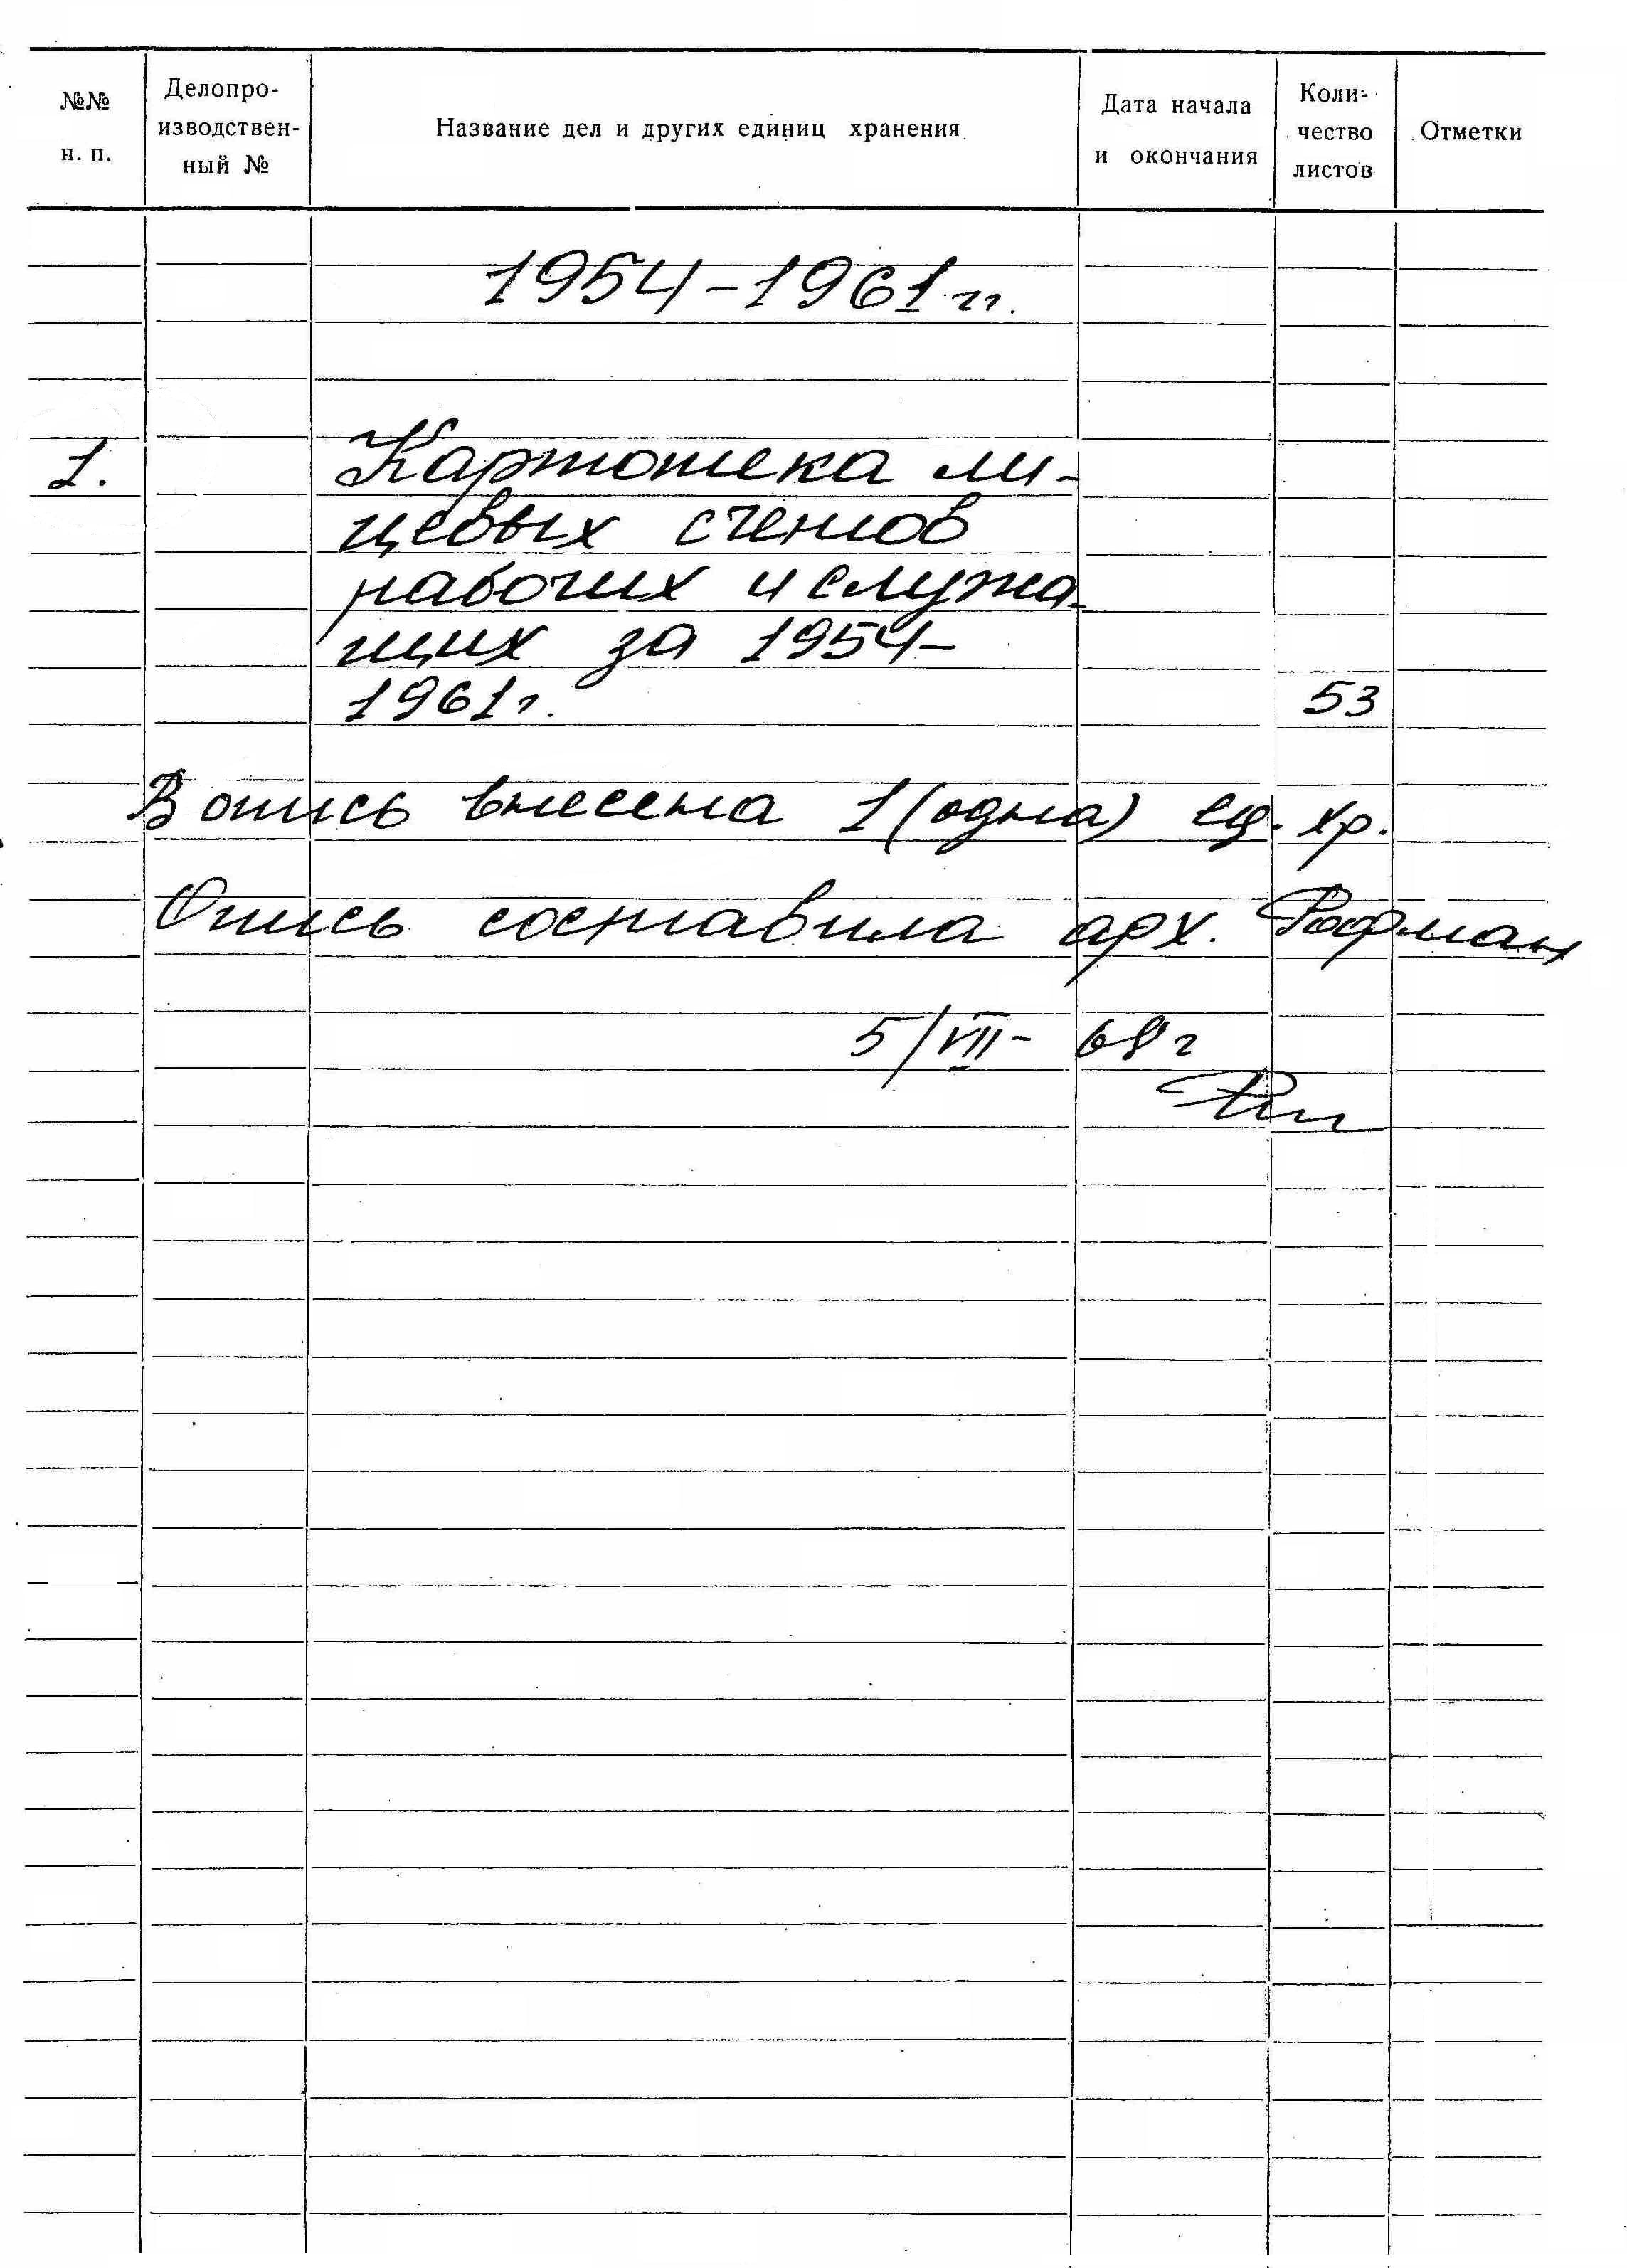 №№ н. п.
Делопро-
изводствен-
ный №
Название дел и других единиц хранения
Дата начала
и окончания
Коли-
чество
листов
Отметки
1954-1961 гг.
1. Картотека ли-
цевых счетов
рабочих и служа-
щих за 1954-
1961г. 53
В опись внесена 1 (одна) ед. хр.
Опись составила арх. Рофман
5/VII- 68 г